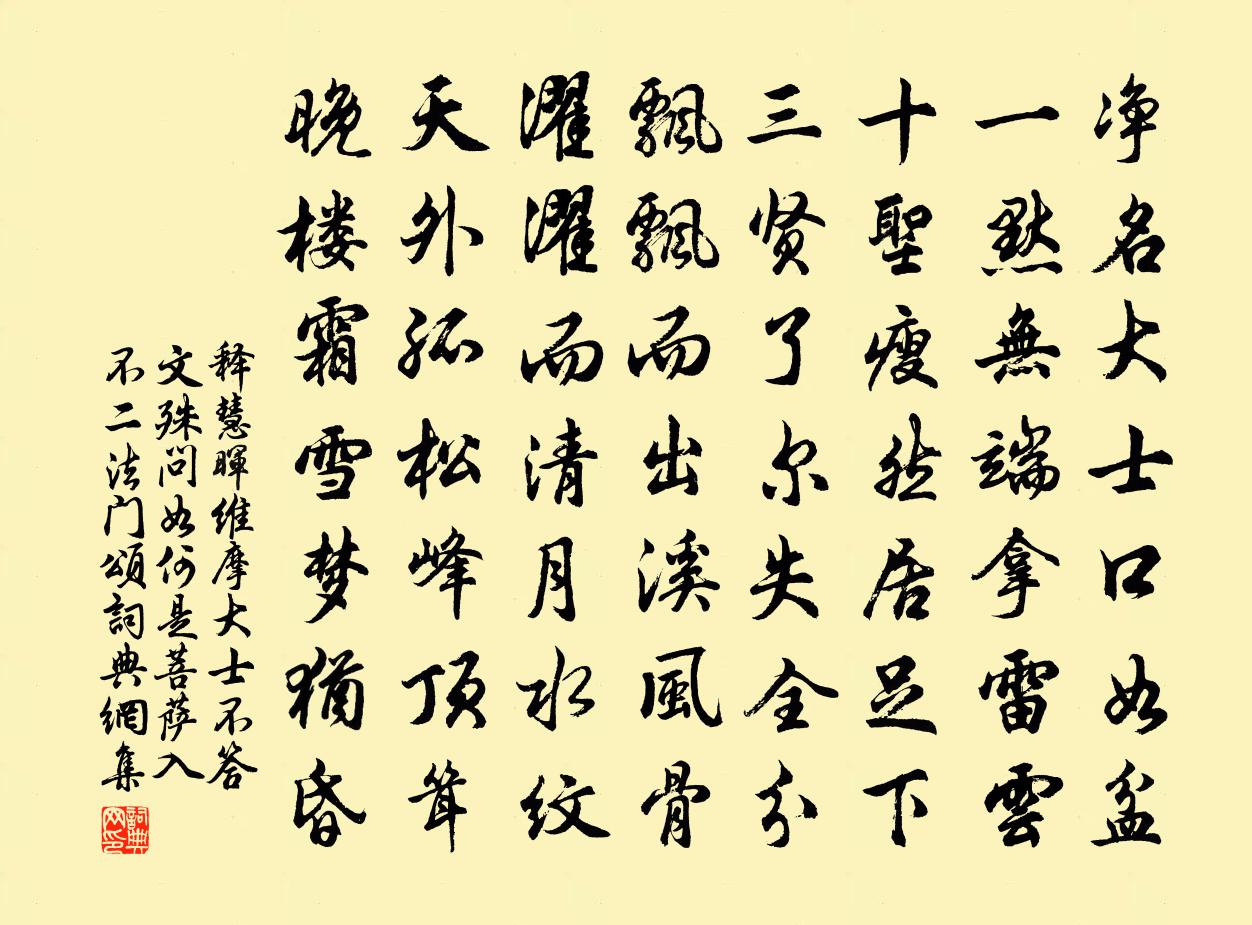 净名大士口如盆
一默無端拿雷雲
十聖瘦然居足下
三贤了尔失全分
飘飘而出溪風骨
濯濯而清月水纹
天外孤松峰顶耸
晚楼霜雪梦犹昏
释慧暉维摩大士不答
文殊問如何是菩萨入
不二法门頌詞典網集
詞典网印